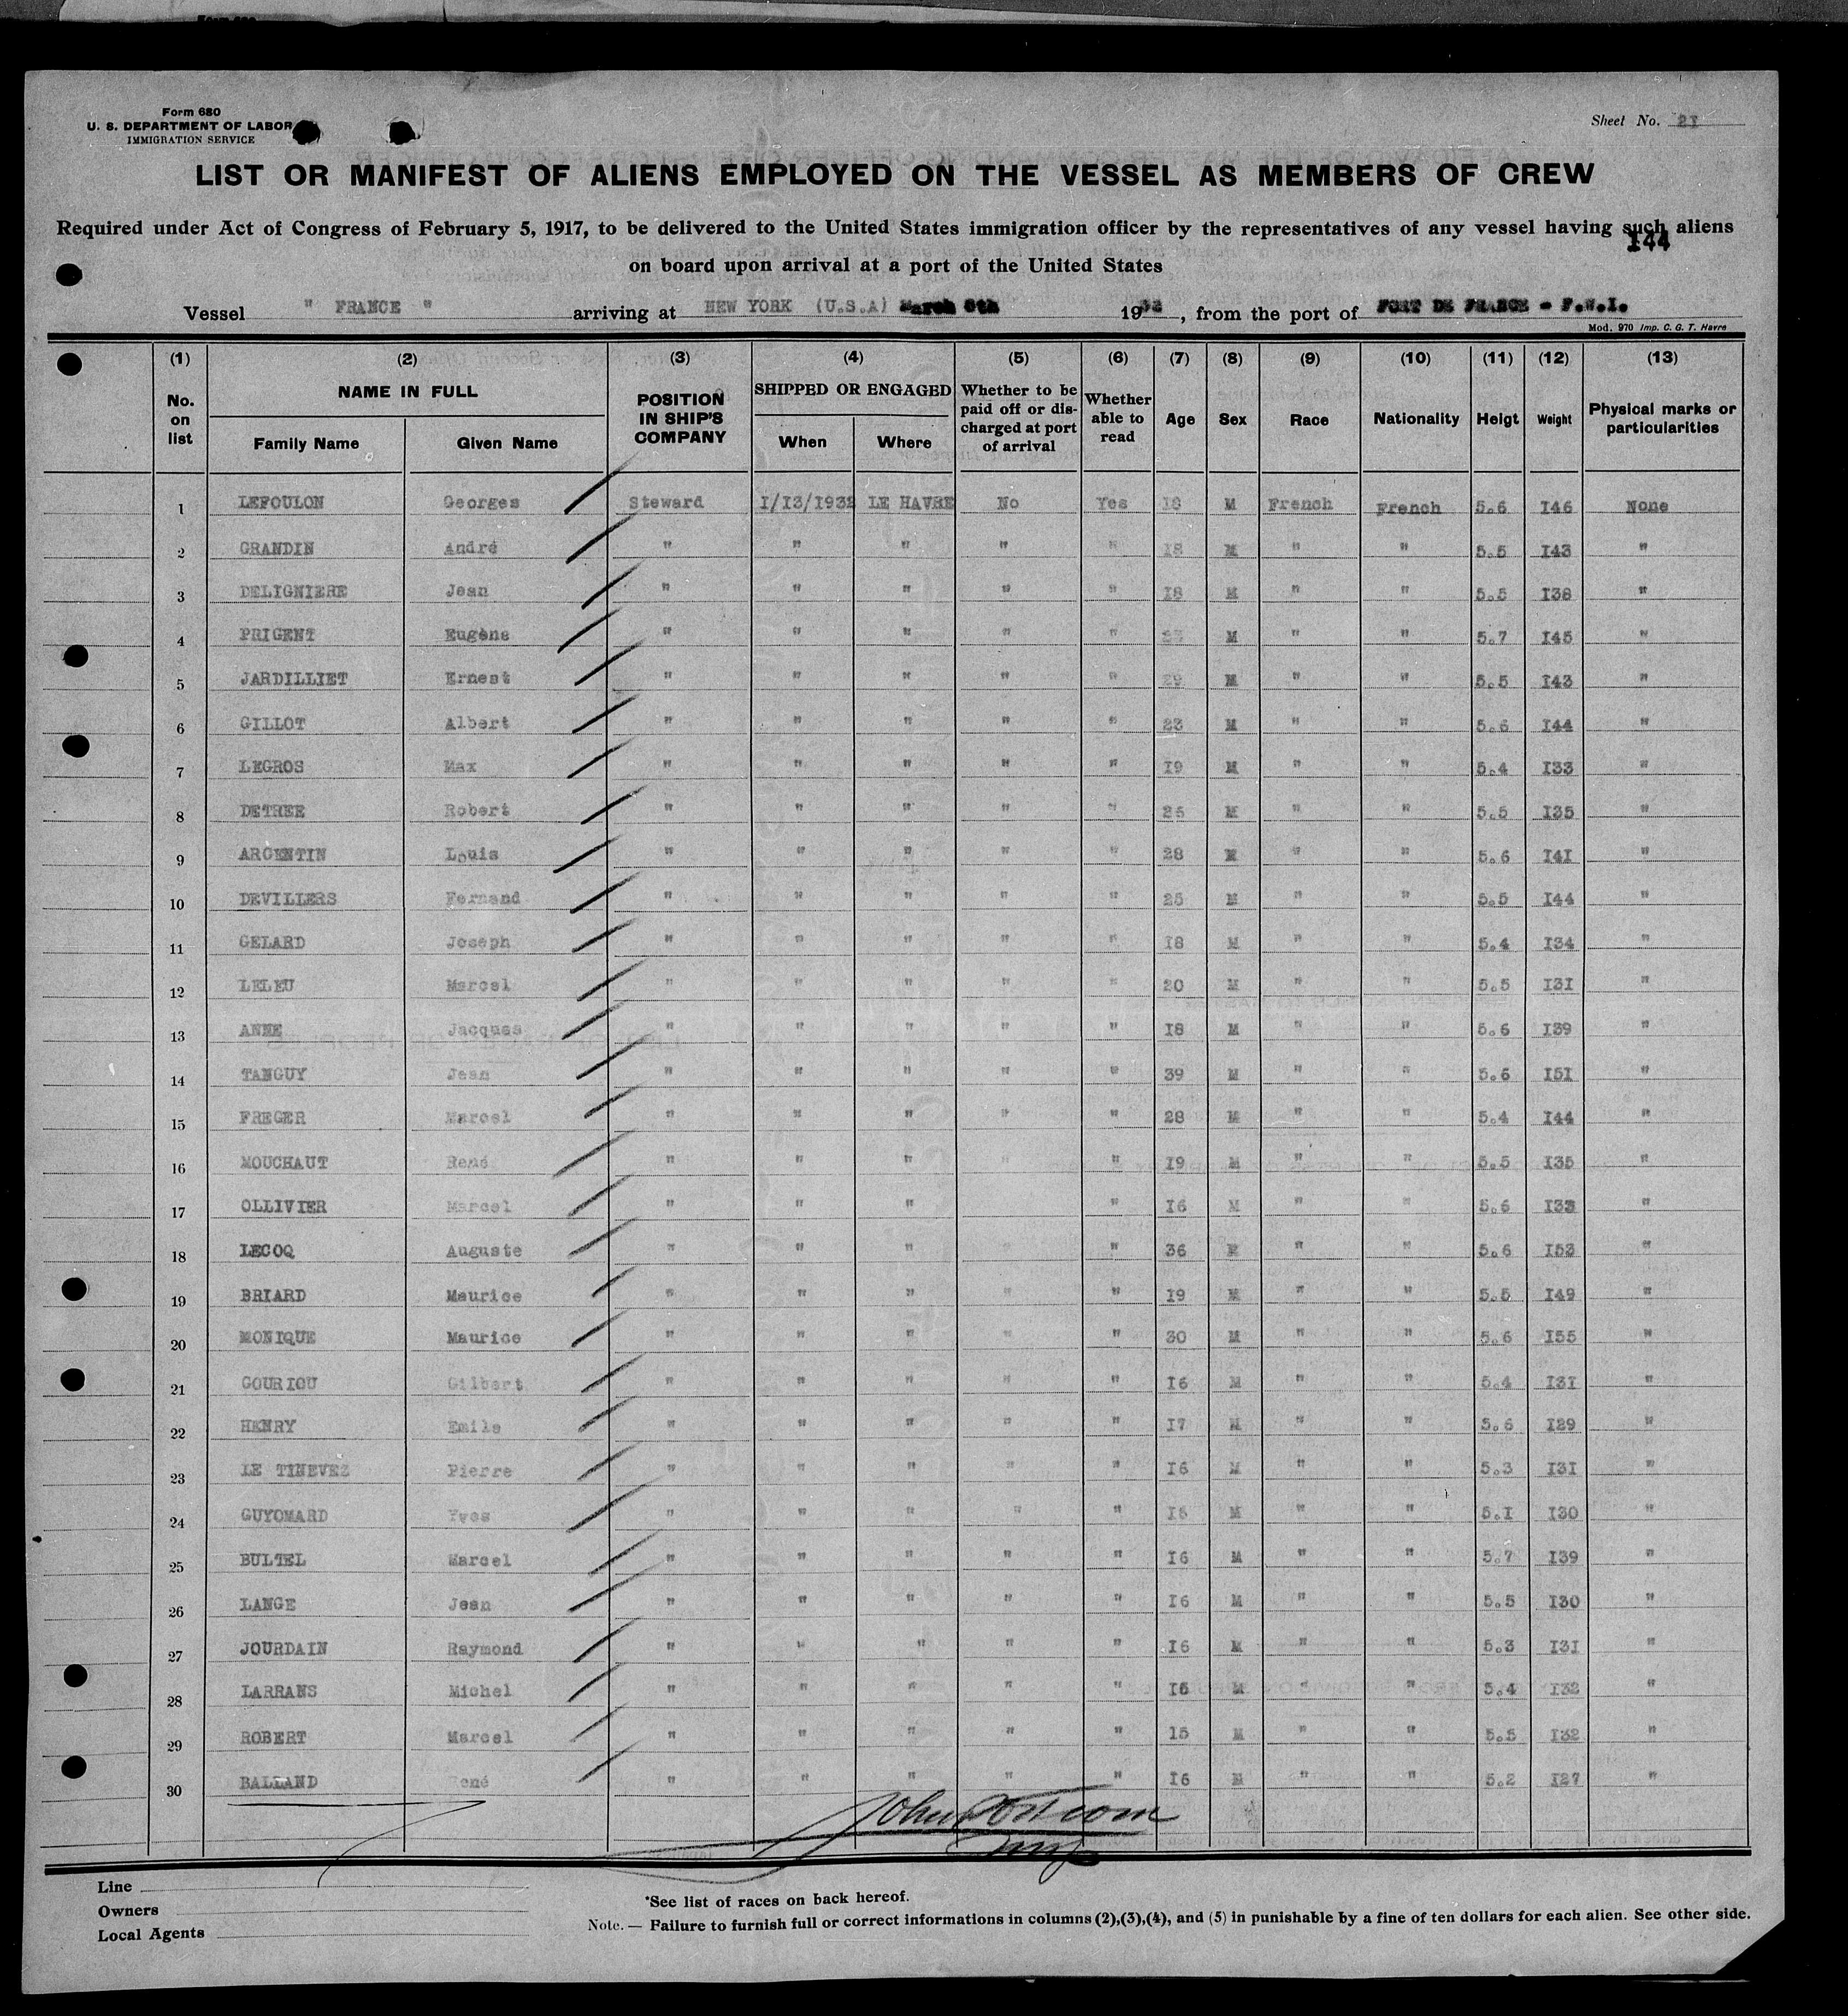 Form 680
U. S. DEPARTMENT OF LABOR
IMMIGRATION SERVICE
Sheet No. 21
LIST OR MANIFEST OF ALIENS EMPLOYED ON THE VESSEL AS MEMBERS OF CREW
Required under Act of Congress of February 5, 1917, to be delivered to the United States immigration officer by the representatives of any vessel having such aliens
I44
on board upon arrival at a port of the United States
Vessel " FRANCE " arriving at NEW YORK (U.S.A) March 8th 1932, from the port of FORT DE FRANCE - F.W.I.
Mod. 970 Imp. C. G. T. Havre
(1) (2) (3) (4) (5) (6) (7) (8) (9) (10) (11) (12) (13)
No. on list NAME IN FULL Family Name Given Name POSITION IN SHIP'S COMPANY SHIPPED OR ENGAGED When Where Whether to be paid off or discharged at port of arrival Whether able to read Age Sex Race Nationality Heigt Weight Physical marks or particularities
1 LEFOULON Georges Steward I/I3/1932 LE HAVRE No Yes I8 M French French 5.6 I46 None
2 GRANDIN André " " " " " I8 M " " 5.5 I43 "
3 DELIGNIERE Jean " " " " " I8 M " " 5.5 I38 "
4 PRIGENT Eugène " " " " " M " " 5.7 I45 "
5 JARDILLIET Ernest " " " " " 29 M " " 5.5 I43 "
6 GILLOT Albert " " " " " 23 M " " 5.6 I44 "
7 LEGROS Max " " " " " I9 M " " 5.4 I33 "
8 DETREE Robert " " " " " 25 M " " 5.5 I35 "
9 ARGENTIN Louis " " " " " 28 M " " 5.6 I4I "
10 DEVILLERS Fernand " " " " " 25 M " " 5.5 I44 "
11 GELARD Joseph " " " " " I8 M " " 5.4 I34 "
12 LELEU Marcel " " " " " 20 M " " 5.5 I3I "
13 ANNE Jacques " " " " " I8 M " " 5.6 I39 "
14 TANGUY Jean " " " " " 39 M " " 5.6 I5I "
15 FREGER Marcel " " " " " 28 M " " 5.4 I44 "
16 MOUCHAUT René " " " " " I9 M " " 5.5 I35 "
17 OLLIVIER Marcel " " " " I6 M " " 5.6 I33 "
18 LECOQ Auguste " " " " " 36 M " " 5.6 I53 "
19 BRIARD Maurice " " " " " I9 M " " 5.5 I49 "
20 MONIQUE Maurice " " " " " 30 M " " 5.6 I55 "
21 GOURIOU Gilbert " " " " " I6 M " " 5.4 I3I "
22 HENRY Emile " " " " " I7 M " " 5.6 I29 "
23 LE TINEVEZ Pierre " " " " " I6 M " " 5.3 I3I "
24 GUYOMARD Yves " " " " " M " " 5.I I30 "
25 BULTEL Marcel " " " " " I6 M " " 5.7 I39 "
26 LANGE Jean " " " " " I6 M " " 5.5 I30 "
27 JOURDAIN Raymond " " " " " I6 M " " 5.3 I3I "
28 LARRANS Michel " " " " " M " " 5.4 I32 "
29 ROBERT Marcel " " " " " I5 M " " 5.5 I32 "
30 BALLAND René " " " " " I6 M " " 5.2 I27 "
Line
Owners
Local Agents
*See list of races on back hereof.
Note. — Failure to furnish full or correct informations in columns (2),(3),(4), and (5) in punishable by a fine of ten dollars for each alien. See other side.